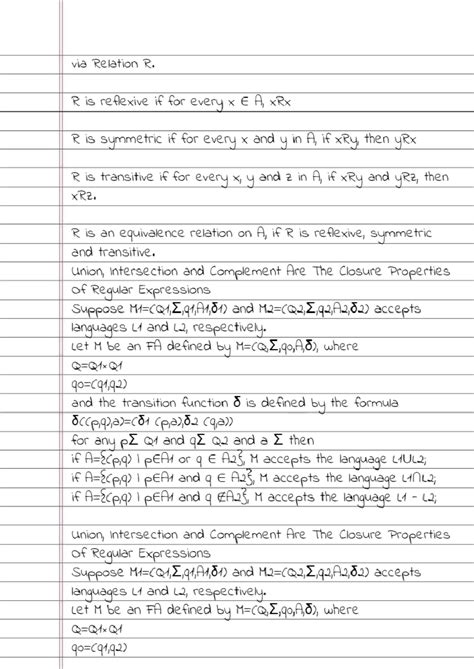 via Relation R.
R is reflexive if for every x ∈ A, xRx
R is symmetric if for every x and y in A, if xRy, then yRx
R is transitive if for every x, y and z in A, if xRy and yRz, then
xRz.
R is an equivalence relation on A, if R is reflexive, symmetric
and transitive.
Union, Intersection and Complement Are The Closure Properties
Of Regular Expressions
Suppose M1=(Q1,Σ,q1,A1,δ1) and M2=(Q2,Σ,q2,A2,δ2) accepts
languages L1 and L2, respectively.
Let M be an FA defined by M=(Q,Σ,q0,A,δ), where
Q=Q1×Q1
q0=(q1,q2)
and the transition function δ is defined by the formula
δ((p,q),a)=(δ1 (p,a),δ2 (q,a))
for any pΣ Q1 and qΣ Q2 and a Σ then
if A={(p,q) | p∈A1 or q ∈ A2}, M accepts the language L1∪L2;
if A={(p,q) | p∈A1 and q ∈ A2}, M accepts the language L1∩L2;
if A={(p,q) | p∈A1 and q ∉A2}, M accepts the language L1 - L2;
Union, Intersection and Complement Are The Closure Properties
Of Regular Expressions
Suppose M1=(Q1,Σ,q1,A1,δ1) and M2=(Q2,Σ,q2,A2,δ2) accepts
languages L1 and L2, respectively.
Let M be an FA defined by M=(Q,Σ,q0,A,δ), where
Q=Q1×Q1
q0=(q1,q2)